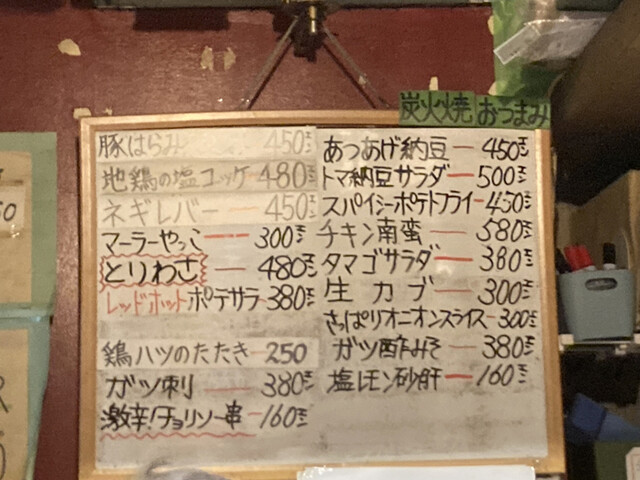 炭火焼 おつまみ
豚はらみ 450円
地鶏の塩ユッケ 480円
ネギレバー ー 450円
マーラーやっこ ー 300円
とりわさ ー 480円
レッドホットポテサラ 380円
鶏ハツのたたき - 250
ガツ刺 ー 380円
激辛!チョリソー串 ー 160円
あつあげ納豆 ー 450円
トマ納豆サラダ ー 500円
スパイシーポテトフライ ー 450円
チキン南蛮 ー 580円
タマゴサラダ ー 380円
生カブ ー 300円
さっぱりオニオンスライス ー 300円
ガツ酢みそ ー 380円
塩レモン砂肝 ー 160円